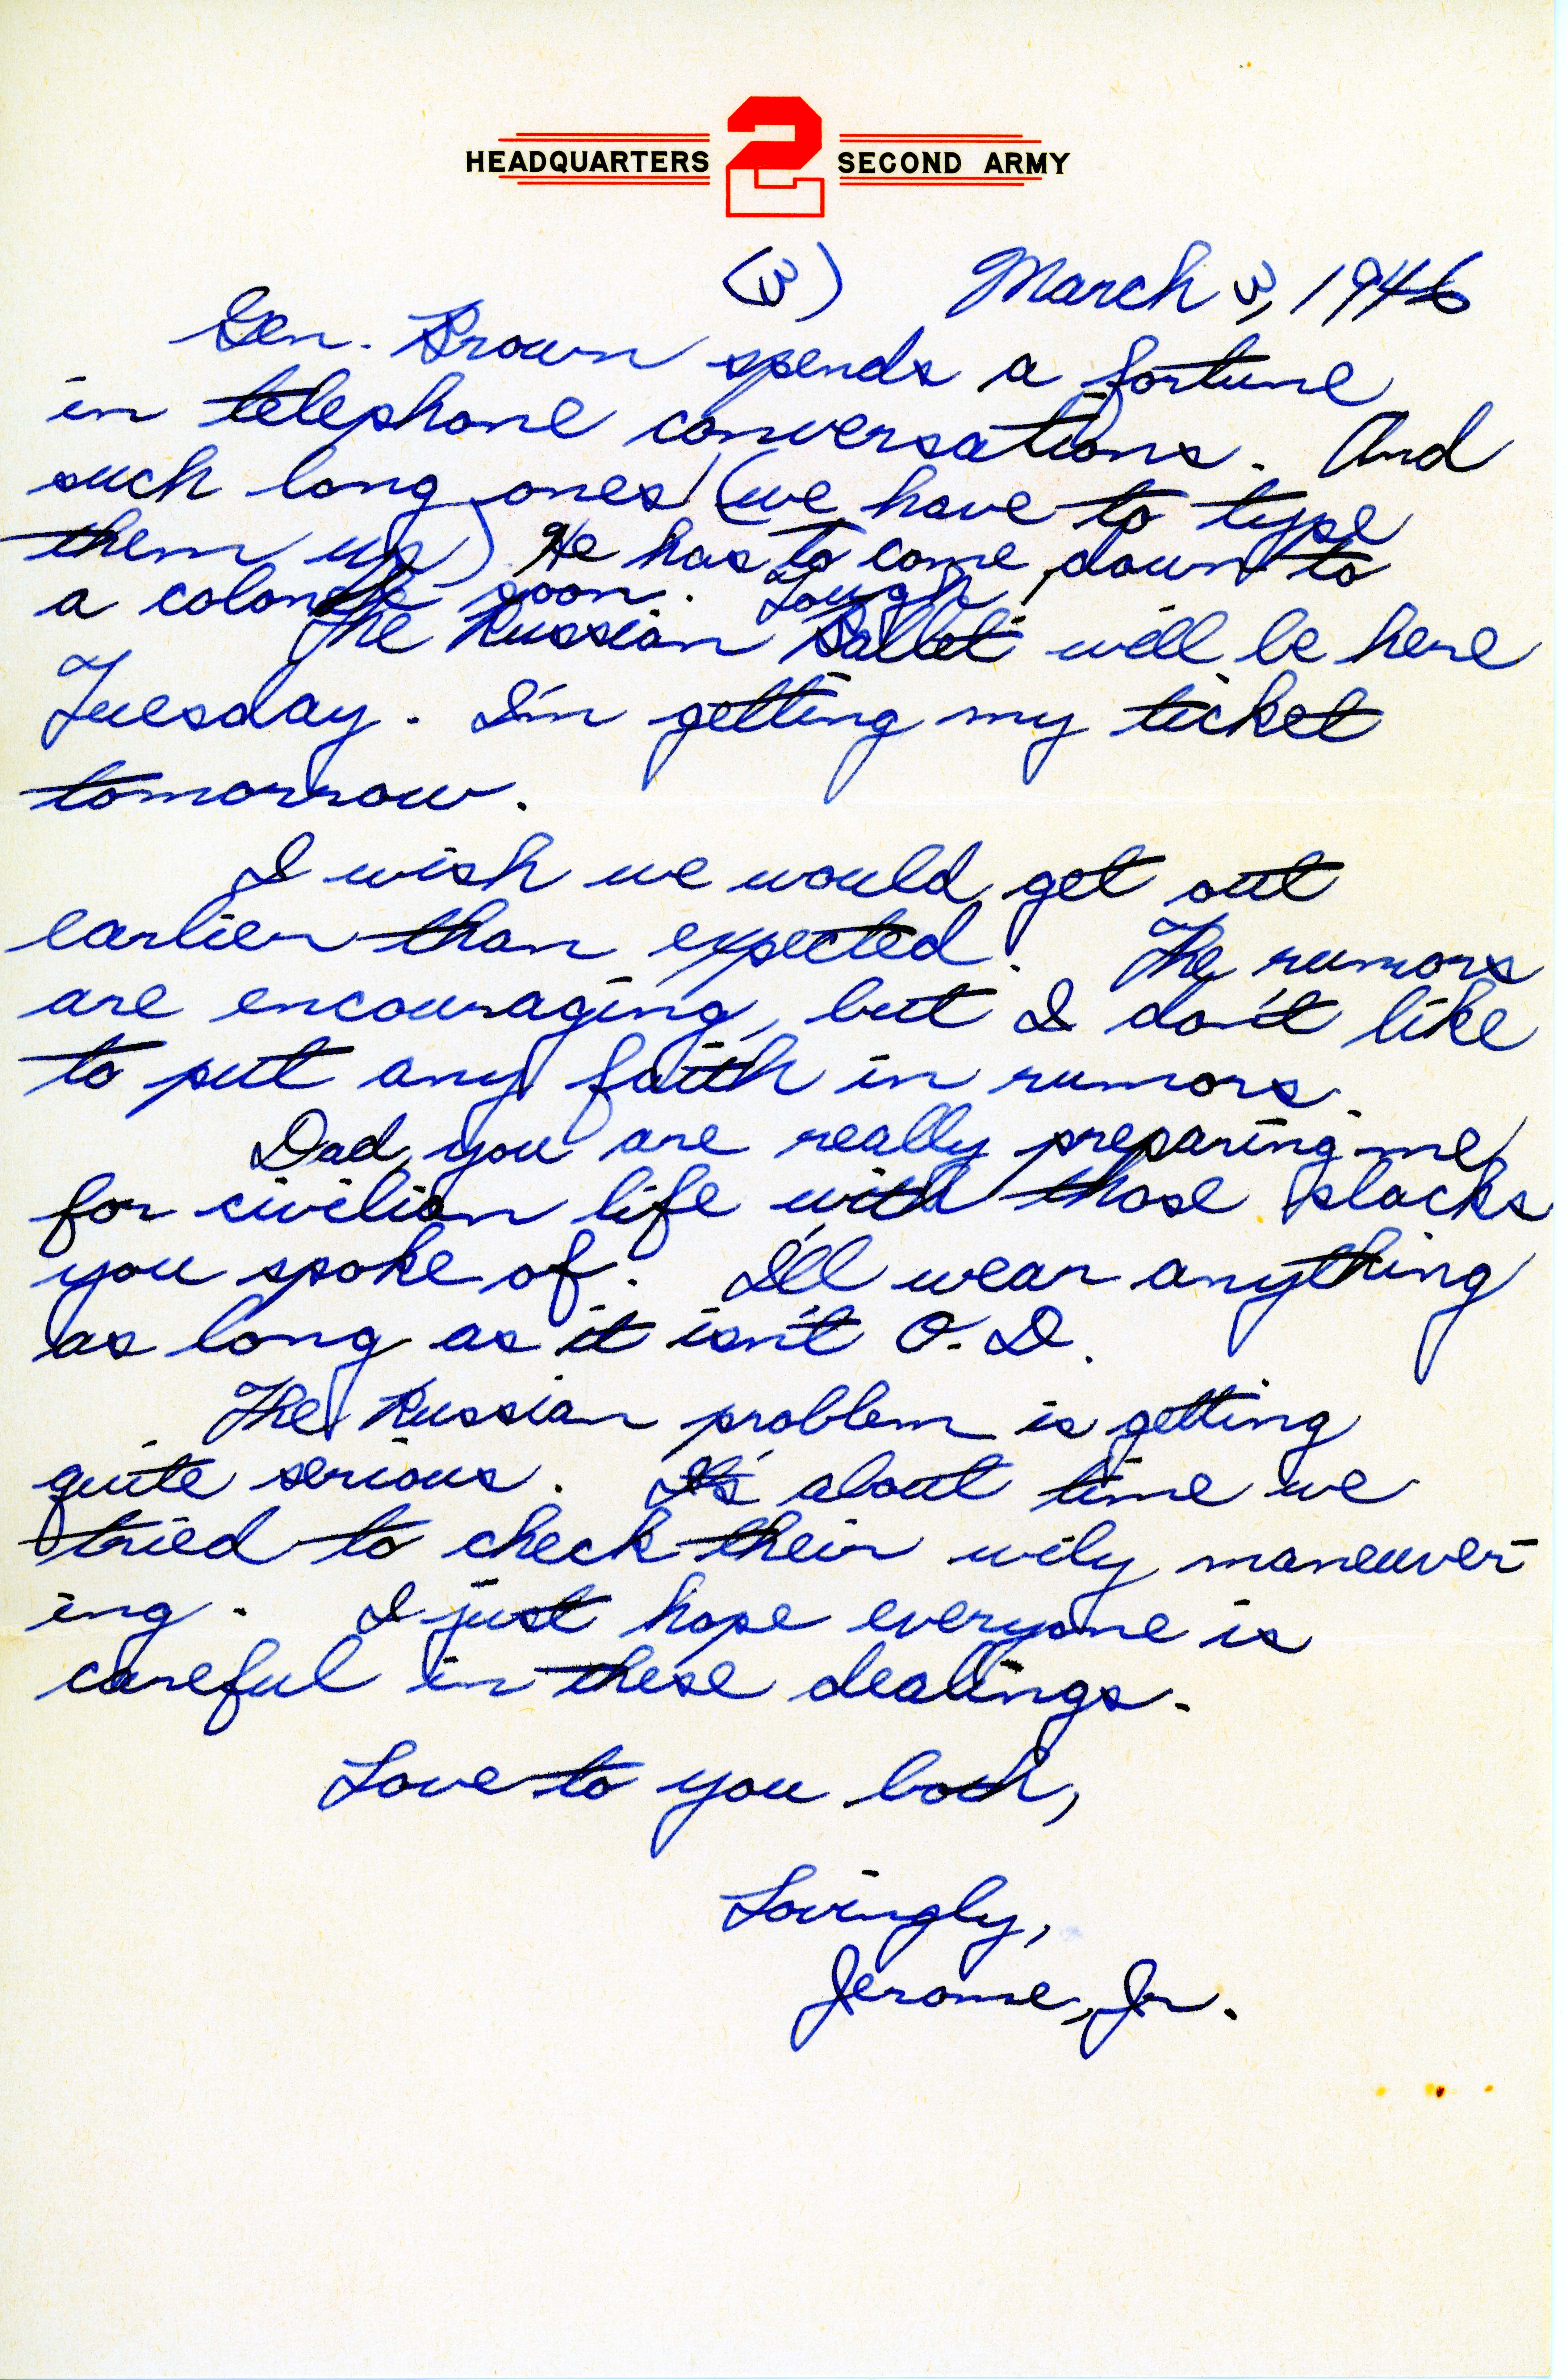 HEADQUARTERS 2 SECOND ARMY
(3) March 3, 1946
Gen. Brown spends a fortune
in telephone conversations. And
such long ones! (we have to type
them up) He has to come down to
a colonel soon. Tough!
The Russian Ballet will be here
Tuesday. I'm getting my ticket
tomorrow.
I wish we would get out
earlier than expected. The rumors
are encouraging, but I don't like
to put any faith in rumors.
Dad, you are really preparing me
for civilian life with those slacks
you spoke of. I'll wear anything
as long as it isn't O.D.
The Russian problem is getting
quite serious. It's about time we
tried to check their wily maneuver-
ing. I just hope everyone is
careful in these dealings.
Love to you both,
Lovingly,
Jerome, Jr.